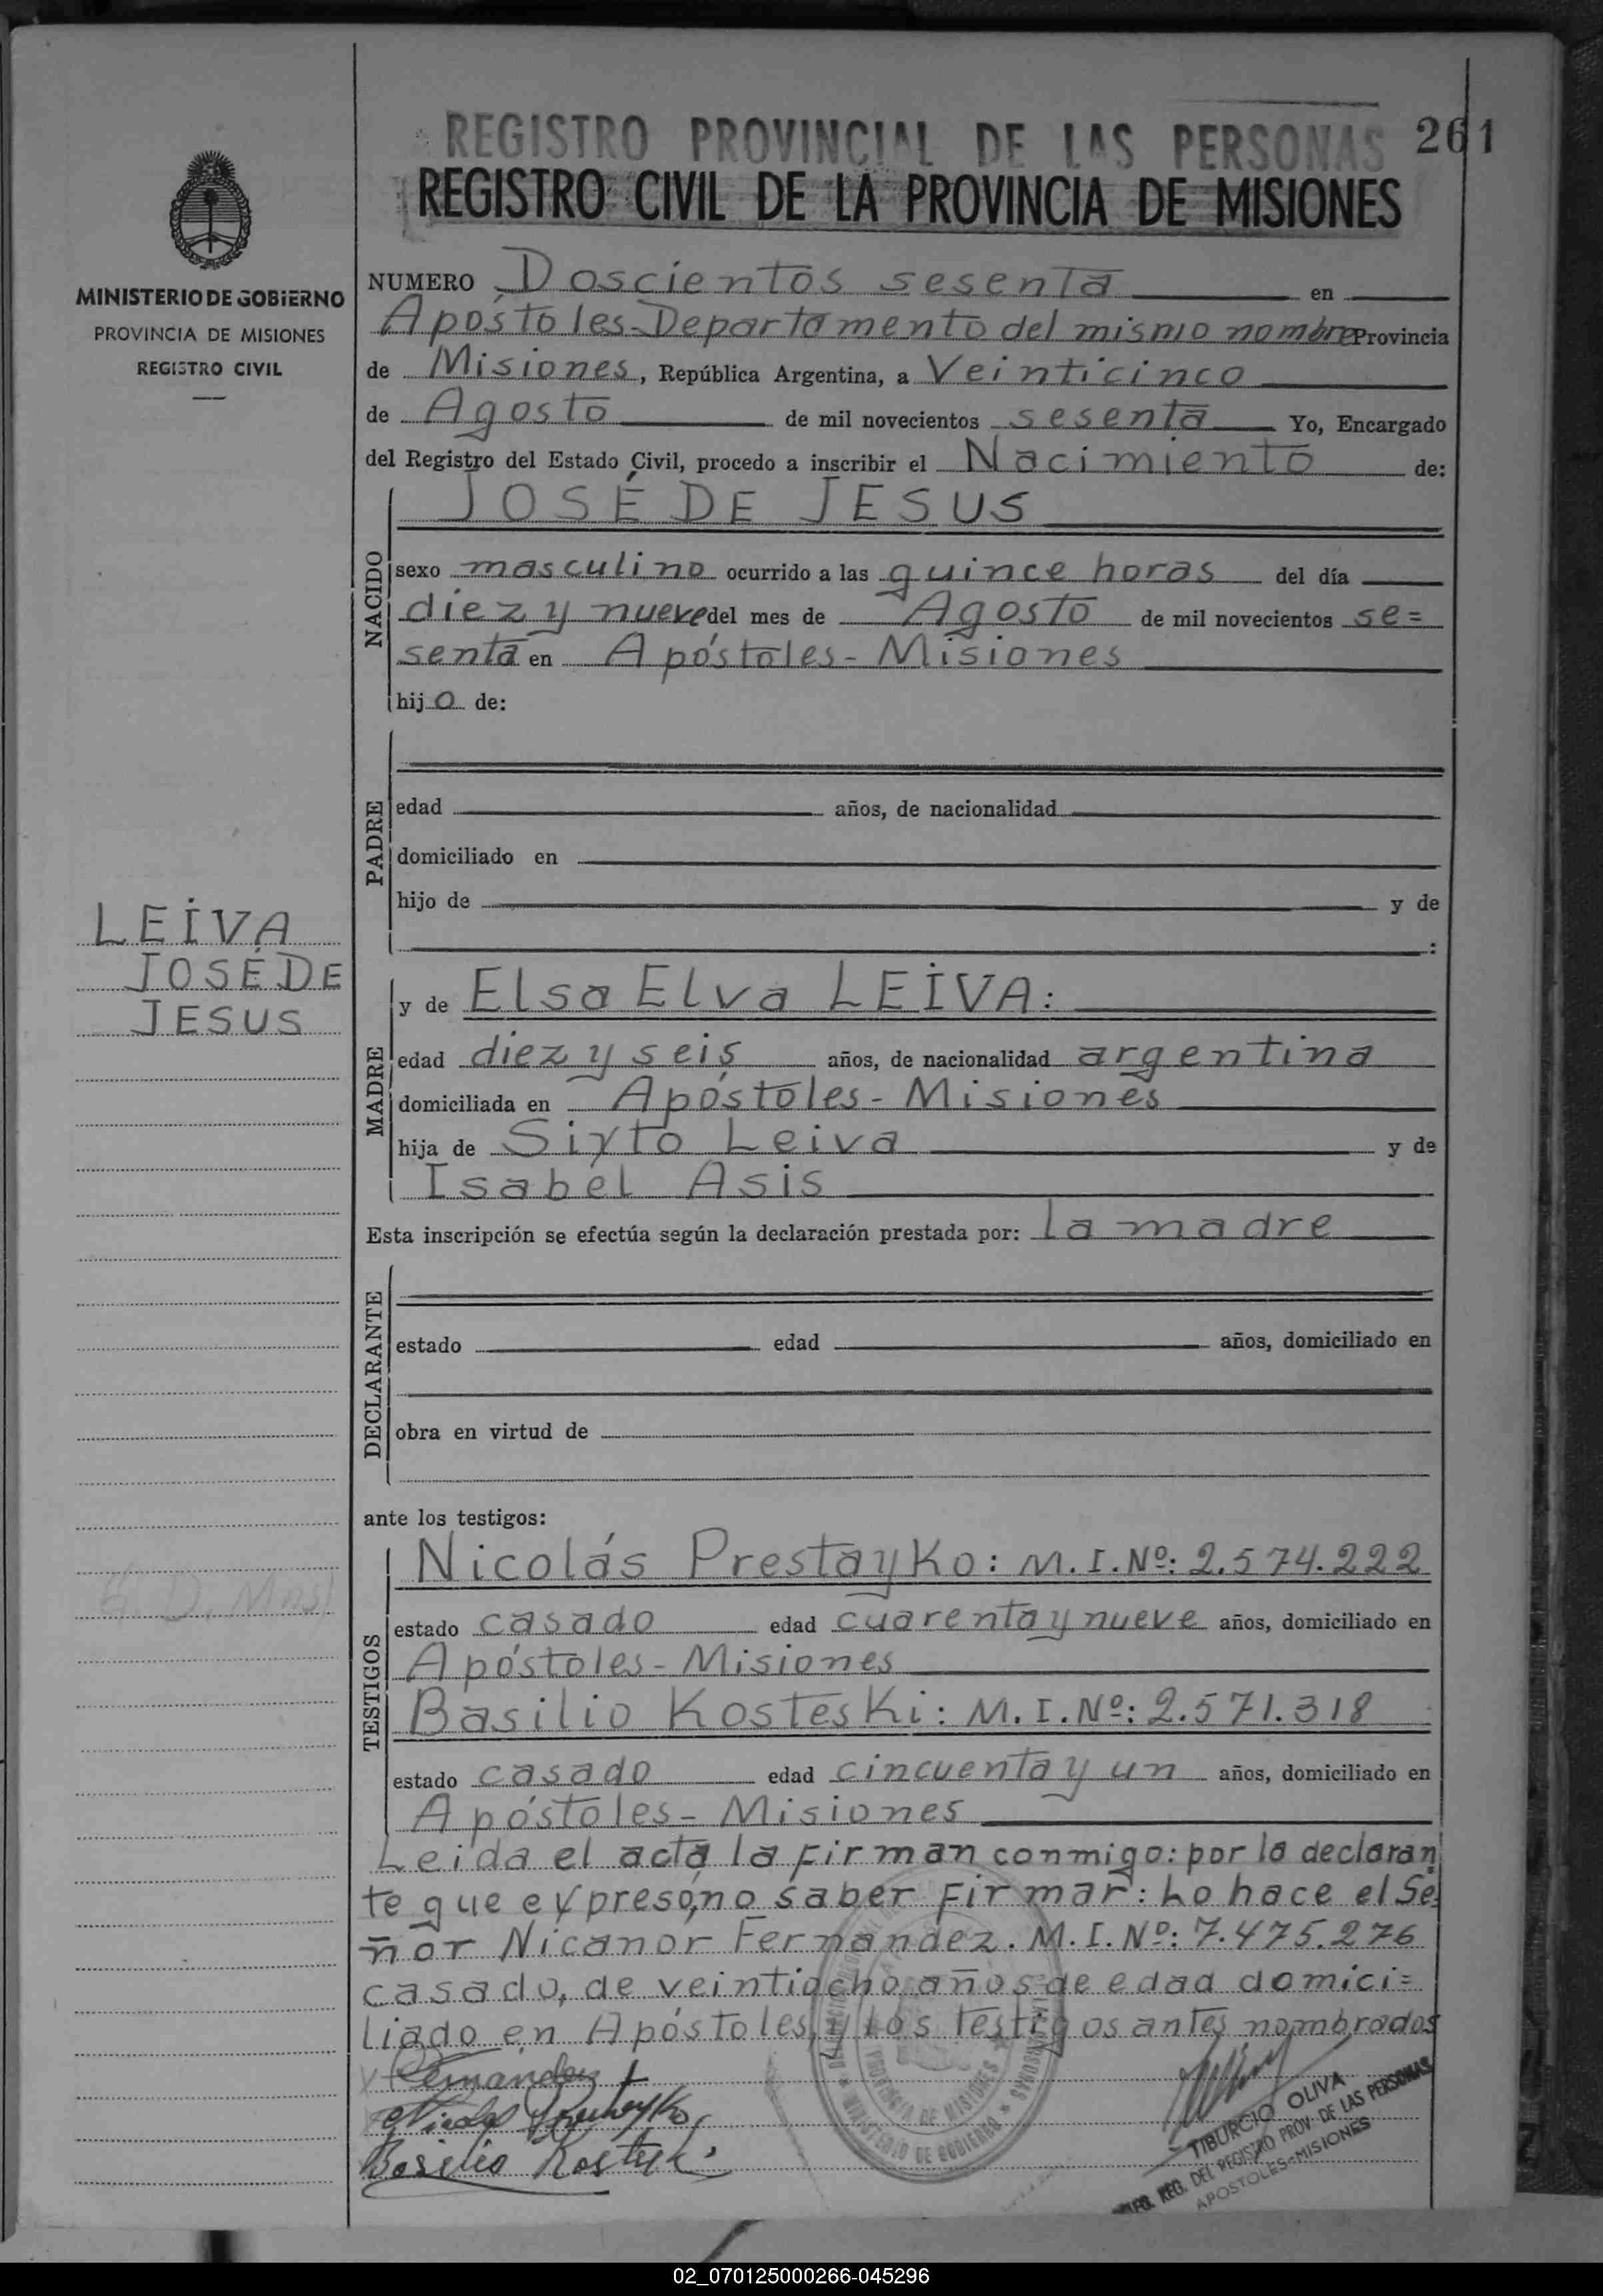 REGISTRO PROVINCIAL DE LAS PERSONAS 261
REGISTRO CIVIL DE LA PROVINCIA DE MISIONES
MINISTERIO DE GOBIERNO
PROVINCIA DE MISIONES
REGISTRO CIVIL
NUMERO Doscientos sesenta en
Apóstoles-Departamento del mismo nombre Provincia
de Misiones, República Argentina, a Veinticinco
de Agosto de mil novecientos sesenta Yo, Encargado
del Registro del Estado Civil, procedo a inscribir el Nacimiento de:
JOSÉ DE JESUS
NACIDO
sexo masculino ocurrido a las quince horas del día
diez y nueve del mes de Agosto de mil novecientos se=
senta en Apóstoles-Misiones
hijo de:
PADRE
edad años, de nacionalidad
domiciliado en
hijo de y de
:
LEIVA
JOSÉ DE
JESUS
MADRE
y de Elsa Elva LEIVA:
edad diez y seis años, de nacionalidad argentina
domiciliada en Apóstoles-Misiones
hija de Sixto Leiva y de
Isabel Asis
Esta inscripción se efectúa según la declaración prestada por: la madre
DECLARANTE
estado edad años, domiciliado en
obra en virtud de
ante los testigos:
TESTIGOS
Nicolás Prestayko: M.I.Nº: 2.574.222
estado casado edad cuarenta y nueve años, domiciliado en
Apóstoles-Misiones
Basilio Kosteski: M.I.Nº: 2.571.318
estado casado edad cincuenta y un años, domiciliado en
Apóstoles-Misiones
Leida el acta la firman conmigo: por la declaran
te que expresó,no saber firmar: Lo hace el Se
ñor Nicanor Fernandez. M.I.Nº: 7.475.276
casado, de veintiocho años de edad domici=
liado en Apóstoles, y los testigos antes nombrados
Fernandez
Basilio
MINISTERIO DE GOBIERNO
PROVINCIA DE MISIONES
TIBURCIO OLIVA
REG. DEL REGISTRO PROV. DE LAS PERSONAS
APOSTOLES-MISIONES
02_070125000266-045296